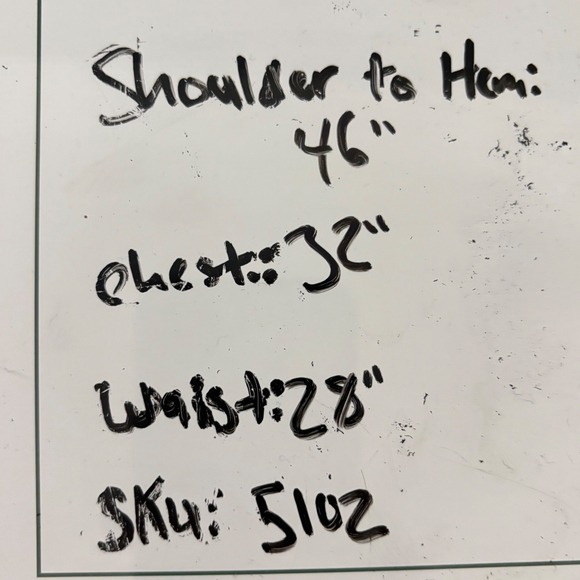 Shoulder to Hem:
46"
chest: 32"
Waist: 28"
SKU: 5102